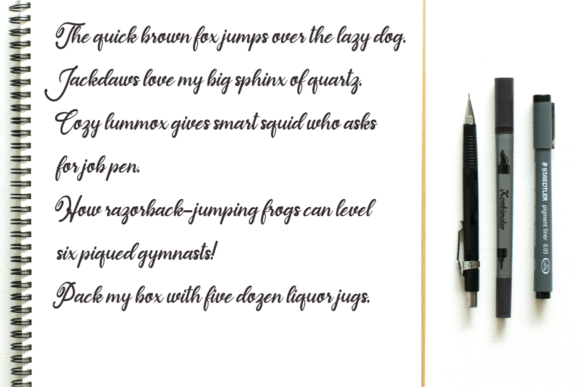 The quick brown fox jumps over the lazy dog.
Jackdaws love my big sphinx of quartz.
Cozy lummox gives smart squid who asks
for job pen.
How razorback-jumping frogs can level
six piqued gymnasts!
Pack my box with five dozen liquor jugs.
STAEDTLER
pigment liner
0.05